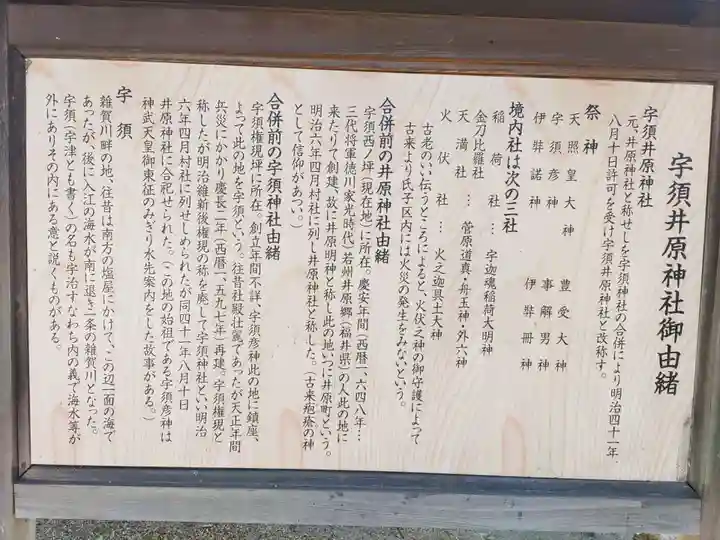 宇須井原神社御由緒
宇須井原神社
元、井原神社と称せしを宇須神社の合併により明治四十一年
八月十日許可を受け宇須井原神社と改称す。
祭神
天照皇大神 豊受大神
宇須彦神 事解男神
伊弉諾神 伊弉冊神
境内社は次の三社
稲荷社…宇迦魂稲荷大明神
金刀比羅社
天満社…菅原道真・舟玉神・外六神
火伏社…火之迦具土大神
古老のいい伝うところによると、火伏之神の御守護によって
古来より氏子区内には大火の発生をみないという。
合併前の井原神社由緒
宇須西ノ坪(現在地)に所在。慶安年間(西暦一、六四八年…
三代将軍徳川家光時代)若州井原郷(福井県)の人此の地に
来たりて創建、故に井原明神と称し此の地いつに井原町という。
明治六年四月村社に列し井原神社と称した。(古来疱瘡の神
として信仰があつい。)
合併前の宇須神社由緒
宇須権現坪に所在。創立年間不詳、宇須彦神此の地に鎮座、
よって此の地を宇須という。往昔社殿壮麗であったが天正年間
兵災にかかり慶長二年(西暦一五九七年)再建。宇須権現と
称したが明治維新後権現の称を廃して宇須神社といい明治
六年四月村社に列せしめられたが同四十一年八月十日
井原神社に合祀せられた。(この地の始祖である宇須彦神は
神武天皇御東征のみぎり水先案内をした故事がある。)
宇須
雑賀川畔の地、往昔は南方の塩屋にかけて、この辺一面の海で
あったが、後に入江の海水が南に退き一条の雑賀川となった。
宇須(宇津とも書く)の名も宇治すなわち内の義で海水溝が
外にありその内にある意と説くものがある。